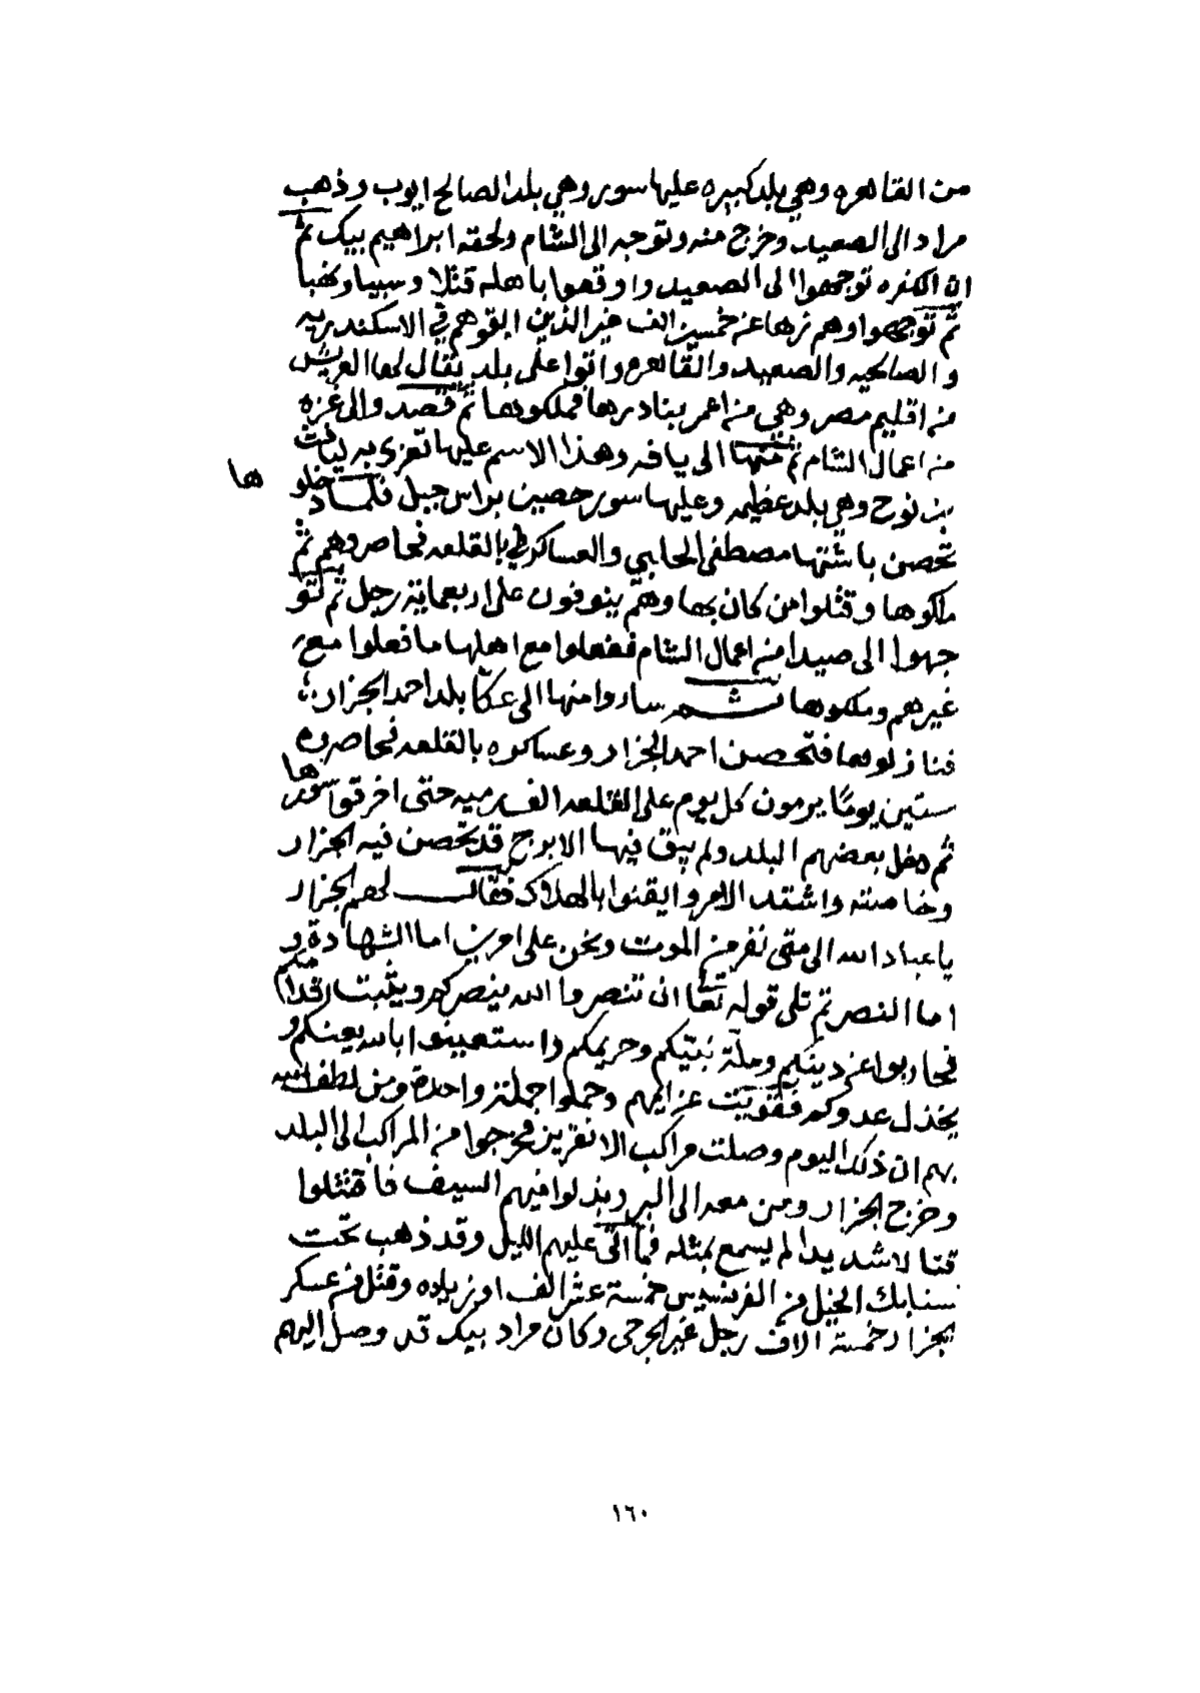 من القاهره وهي بلد كبيره عليها سور وهي بلد الصالح ايوب وذهب
مراد الى الصعيد وخرج منه وتوجه الى الشام ولحقه ابراهيم بيك ثم
ان الكفره توجهوا الى الصعيد واوقعوا باهله قتلا وسبيا ونهبا
ثم توجهوا وهم زهاء عن خمسين الف غير الذين ابقوهم في الاسكندريه
والصالحيه والصعيد والقاهره واتوا على بلد يقال لها العريش
من اقليم مصر وهي من اعمر بنادرها فملكوها ثم قصدوا الى غزه
من اعمال الشام ثم منها الى يافه وهذا الاسم عليها تعزى به ليافث
بن نوح وهي بلد عظيمه وعليها سور حصين براس جبل فلما دخلو
ها
تحصن باشتها مصطفى الحلبي والعساكر في القلعه فحاصروهم ثم
ملكوها وقتلوا من كان بها وهم ينوفون على اربعماية رجل ثم تو
جهوا الى صيدا من اعمال الشام ففعلوا مع اهلها ما فعلوا مع
غيرهم وملكوها ثم ساروا منها الى عكا بلد احمد الجزار
فنازلوها فتحصن احمد الجزار وعساكره بالقلعه فحاصروه
ستين يوما يرمون كل يوم على القلعه الف رميه حتى اخرقوا سورها
ثم دخل بعضهم البلد ولم يبق فيها الا بوج قد تحصن فيه الجزار
وخاصته واشتد الامر وايقنوا بالهلاك فقال لهم الجزار
يا عباد الله الى متى نفر من الموت ونحن على امرين اما الشهادة و
اما النصر ثم تلى قوله تعا ان تنصروا الله ينصركم ويثبت اقدامكم
فحاربوا عن دينكم وملة نبيكم وحريمكم واستعينوا بالله يعينكم و
يخذل عدوكم فقويت عزايمهم وحملوا حملة واحدة ومن لطف الله
بهم ان ذلك اليوم وصلت مراكب الانقريز فخرجوا من المراكب الى البلد
وخرج الجزار ومن معه الى البر وبذلوا فيهم السيف فاقتتلوا
قتالا شديدا لم يسمع بمثله فما اتى عليهم الليل وقد ذهب تحت
سنابك الخيل من الفرنسيس خمسة عشر الف او زياده وقتل من عسكر
الجزار خمسة الاف رجل غير الجرحى وكان مراد بيك قد وصل اليهم
١٦٠